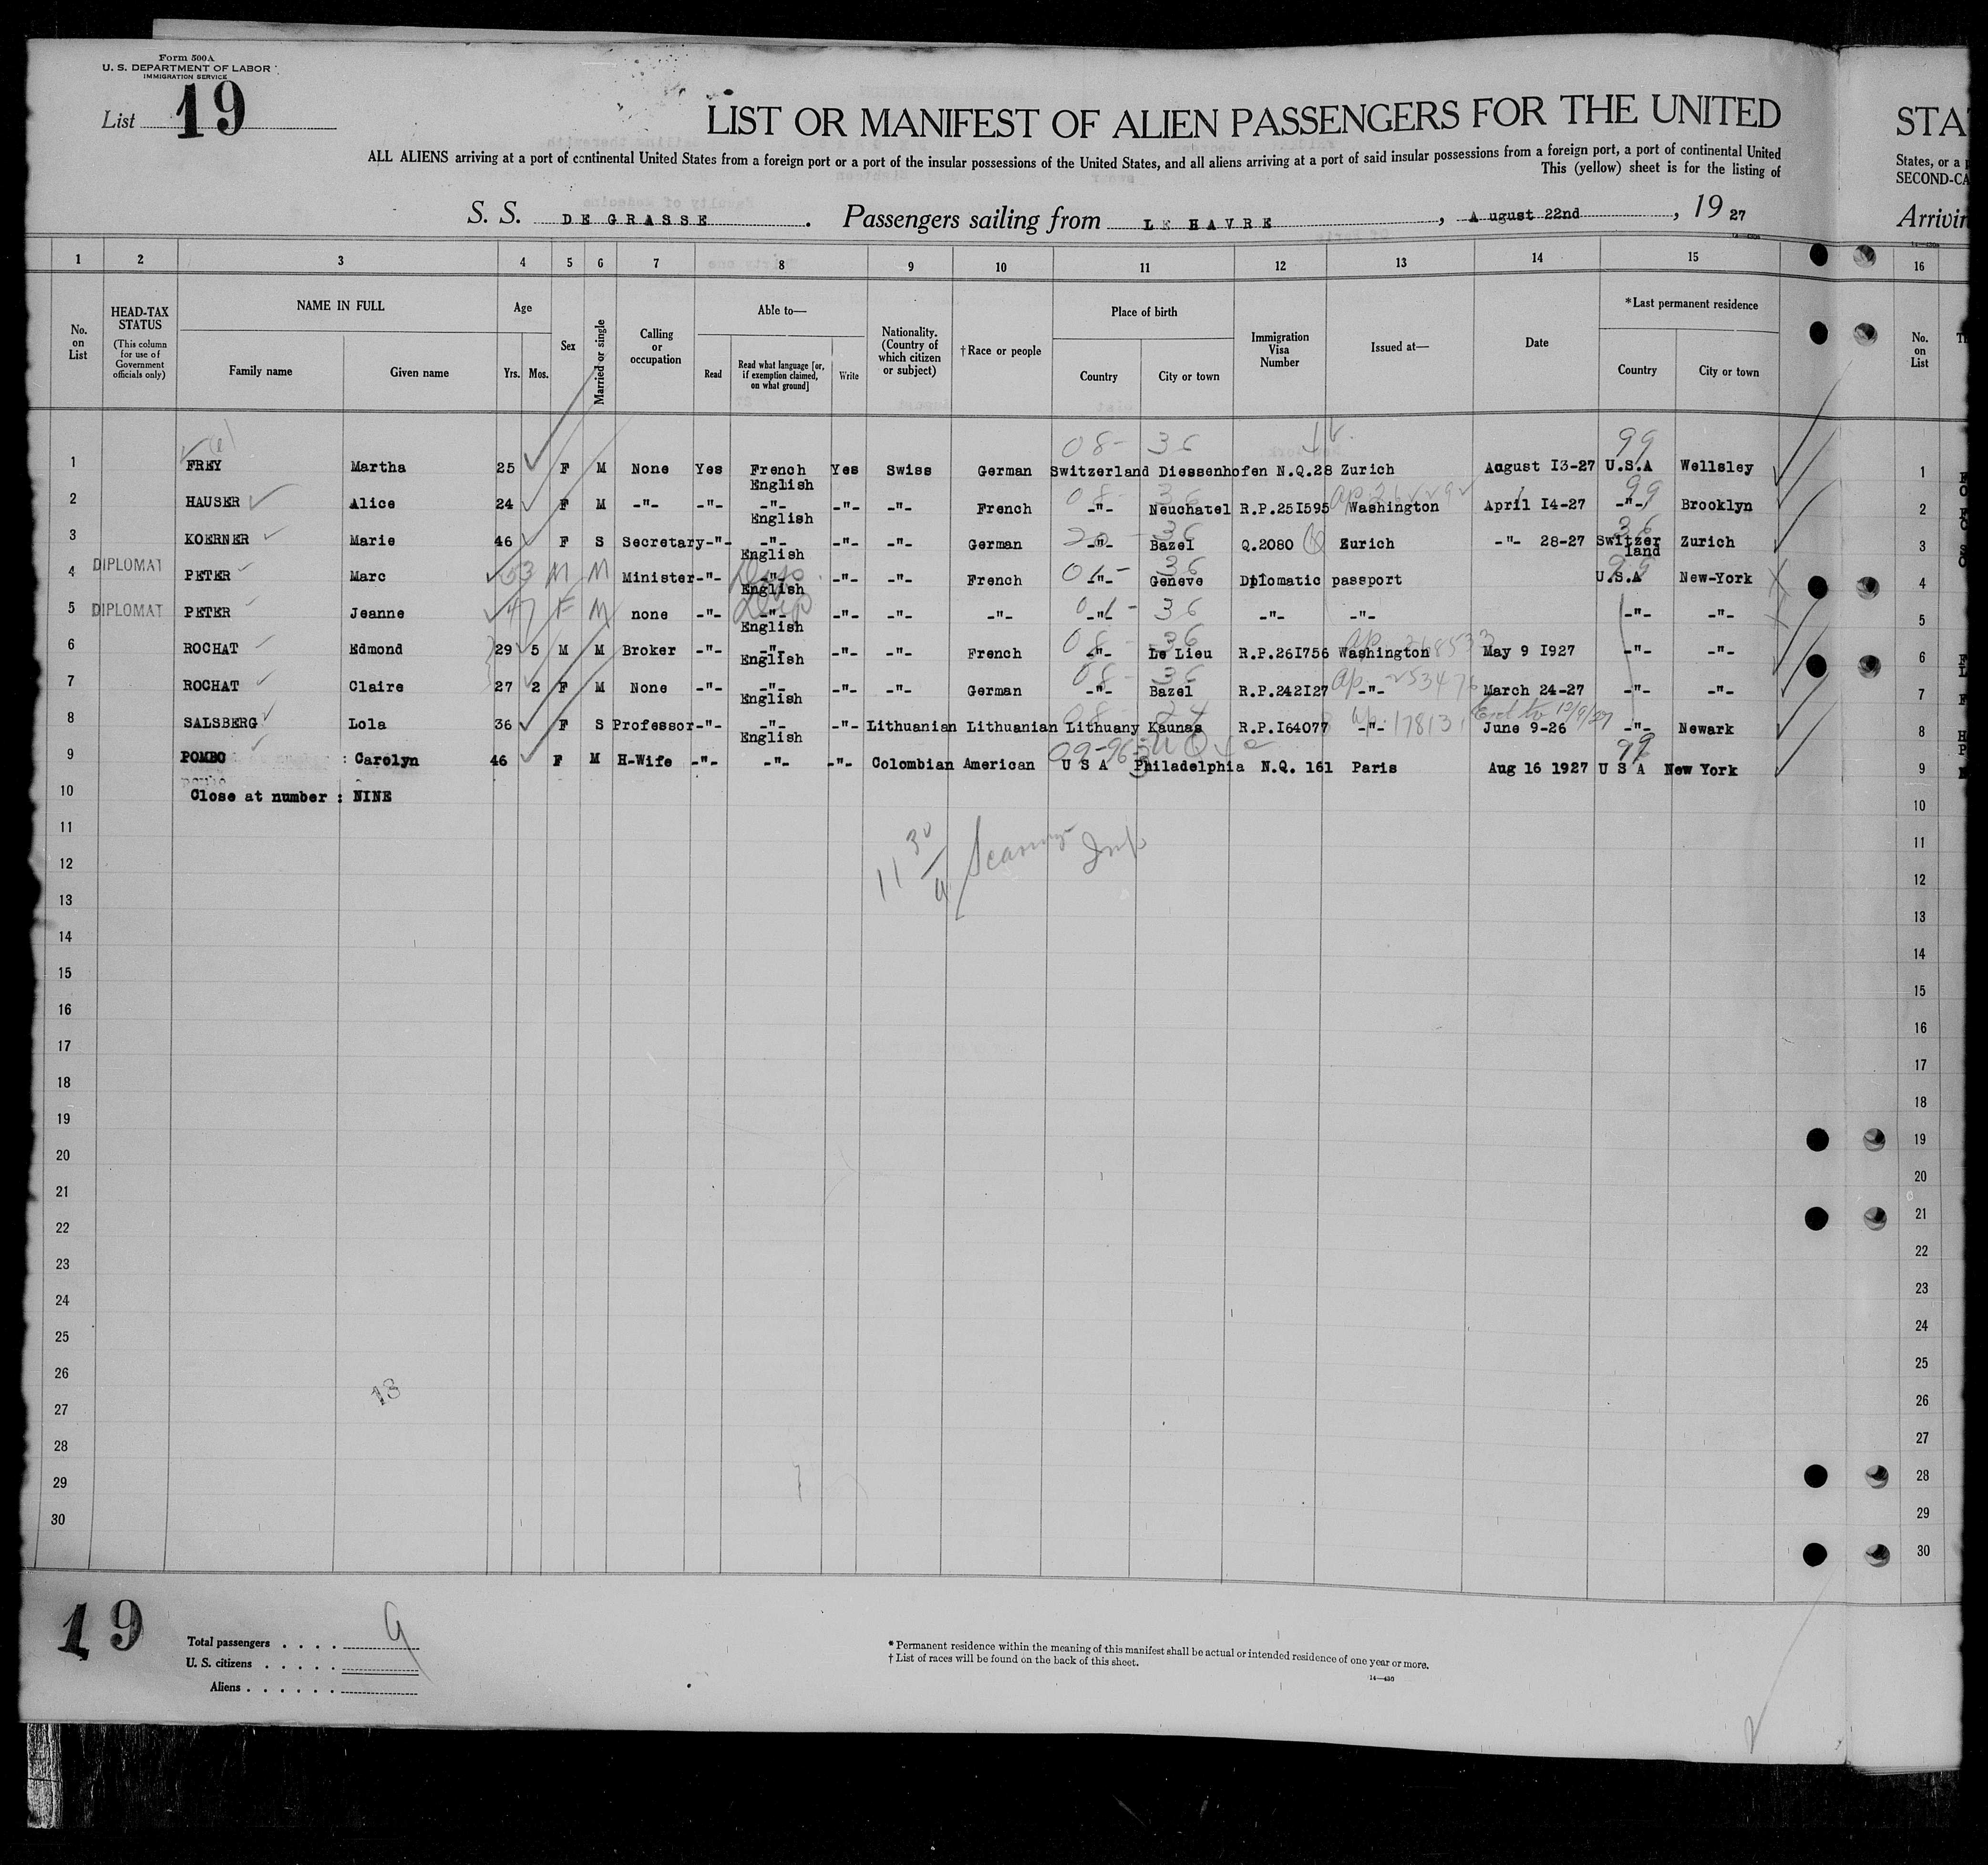 Form 500A
U. S. DEPARTMENT OF LABOR
IMMIGRATION SERVICE
List 19
LIST OR MANIFEST OF ALIEN PASSENGERS FOR THE UNITED
STA
ALL ALIENS arriving at a port of continental United States from a foreign port or a port of the insular possessions of the United States, and all aliens arriving at a port of said insular possessions from a foreign port, a port of continental United
States, or a
This (yellow) sheet is for the listing of
SECOND-CA
S. S. DE GRASSE. Passengers sailing from LE HAVRE, August 22nd, 19 27
Arrivin
1 2 3 4 5 6 7 8 9 10 11 12 13 14 15 16
No. on List
HEAD-TAX STATUS
(This column for use of Government officials only)
NAME IN FULL
Family name Given name
Age
Yrs. Mos.
Sex
Married or single
Calling or occupation
Able to—
Read Read what language [or, if exemption claimed, on what ground] Write
Nationality. (Country of which citizen or subject)
†Race or people
Place of birth
Country City or town
Immigration Visa Number
Issued at—
Date
*Last permanent residence
Country City or town
No. on List
08- 36 99
1 FREY Martha 25 F M None Yes French English Yes Swiss German Switzerland Diessenhofen N.Q.28 Zurich August I3-27 U.S.A Wellsley 1
08- 36 99
2 HAUSER Alice 24 F M -"- -"- -"- English -"- -"- French -"- Neuchatel R.P.25I595 Washington April I4-27 -"- Brooklyn 2
36 36
3 KOERNER Marie 46 F S Secretary -"- -"- English -"- -"- German -"- Bazel Q.2080 Zurich -"- 28-27 Switzer land Zurich 3
01- 36 99
4 DIPLOMAT PETER Marc 53 M M Minister -"- Dip -"- English -"- -"- French -"- Geneve Diplomatic passport U.S.A New-York 4
01- 36
5 DIPLOMAT PETER Jeanne 47 F M none -"- Dip -"- English -"- -"- -"- -"- -"- -"- -"- -"- 5
08- 36
6 ROCHAT Edmond 29 5 M M Broker -"- -"- English -"- -"- French -"- Le Lieu R.P.26I756 Washington May 9 I927 -"- -"- 6
08- 36 ap. 253476
7 ROCHAT Claire 27 2 F M None -"- -"- English -"- -"- German -"- Bazel R.P.242I27 -"- March 24-27 -"- -"- 7
08- 24 ap. 178131 Ext to 12/9/27
8 SALSBERG Lola 36 F S Professor -"- -"- English -"- Lithuanian Lithuanian Lithuany Kaunas R.P.I64077 -"- June 9-26 -"- Newark 8
99
9 POMBO : Carolyn 46 F M H-Wife -"- -"- -"- Colombian American U S A Philadelphia N.Q. 161 Paris Aug 16 1927 U S A New York 9
10 Close at number : NINE 10
11 11
12 12
13 13
14 14
15 15
16 16
17 17
18 18
19 19
20 20
21 21
22 22
23 23
24 24
25 25
26 26
13
27 27
28 28
29 29
30 30
19
Total passengers . . . . 9
U. S. citizens . . . . .
Aliens . . . . . .
* Permanent residence within the meaning of this manifest shall be actual or intended residence of one year or more.
† List of races will be found on the back of this sheet.
14—430